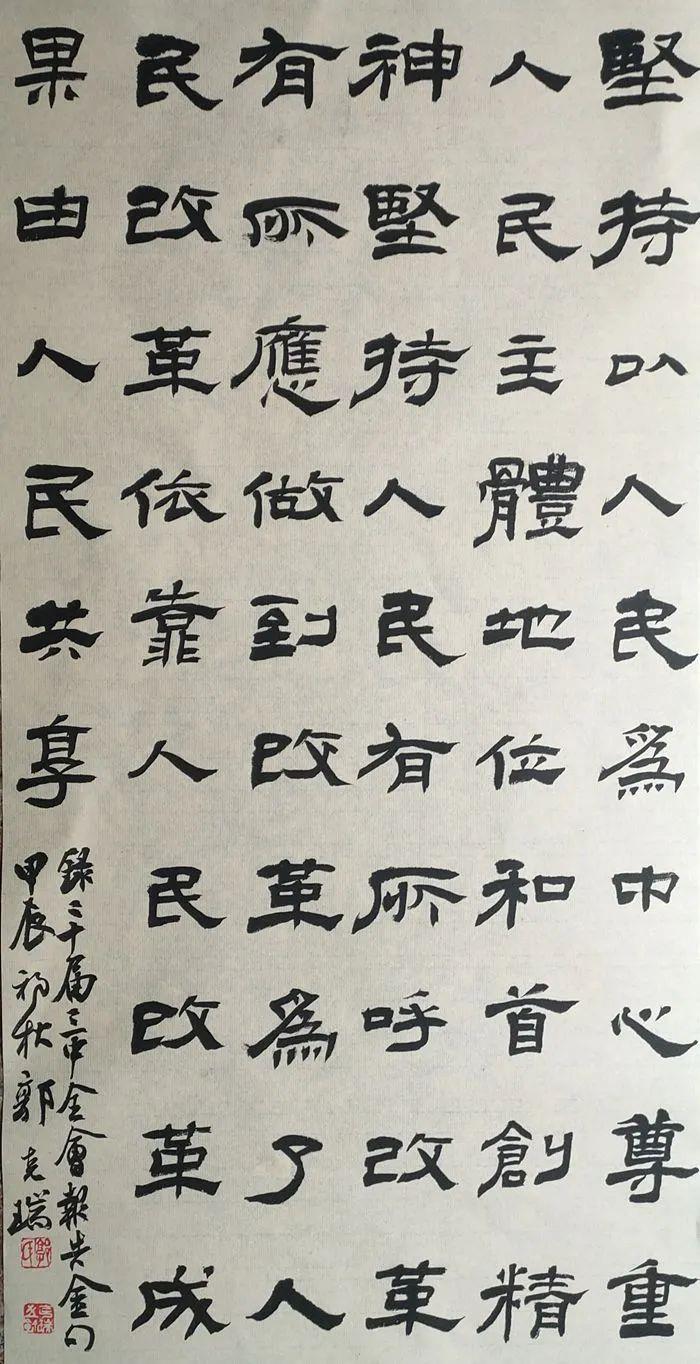 堅持以人民爲中心尊重
人民主體地位和首創精
神堅持人民有所呼改革
有所應做到改革爲了人
民改革依靠人民改革成
果由人民共享
錄二十届三中全會報告金句
甲辰初秋郭克瑞